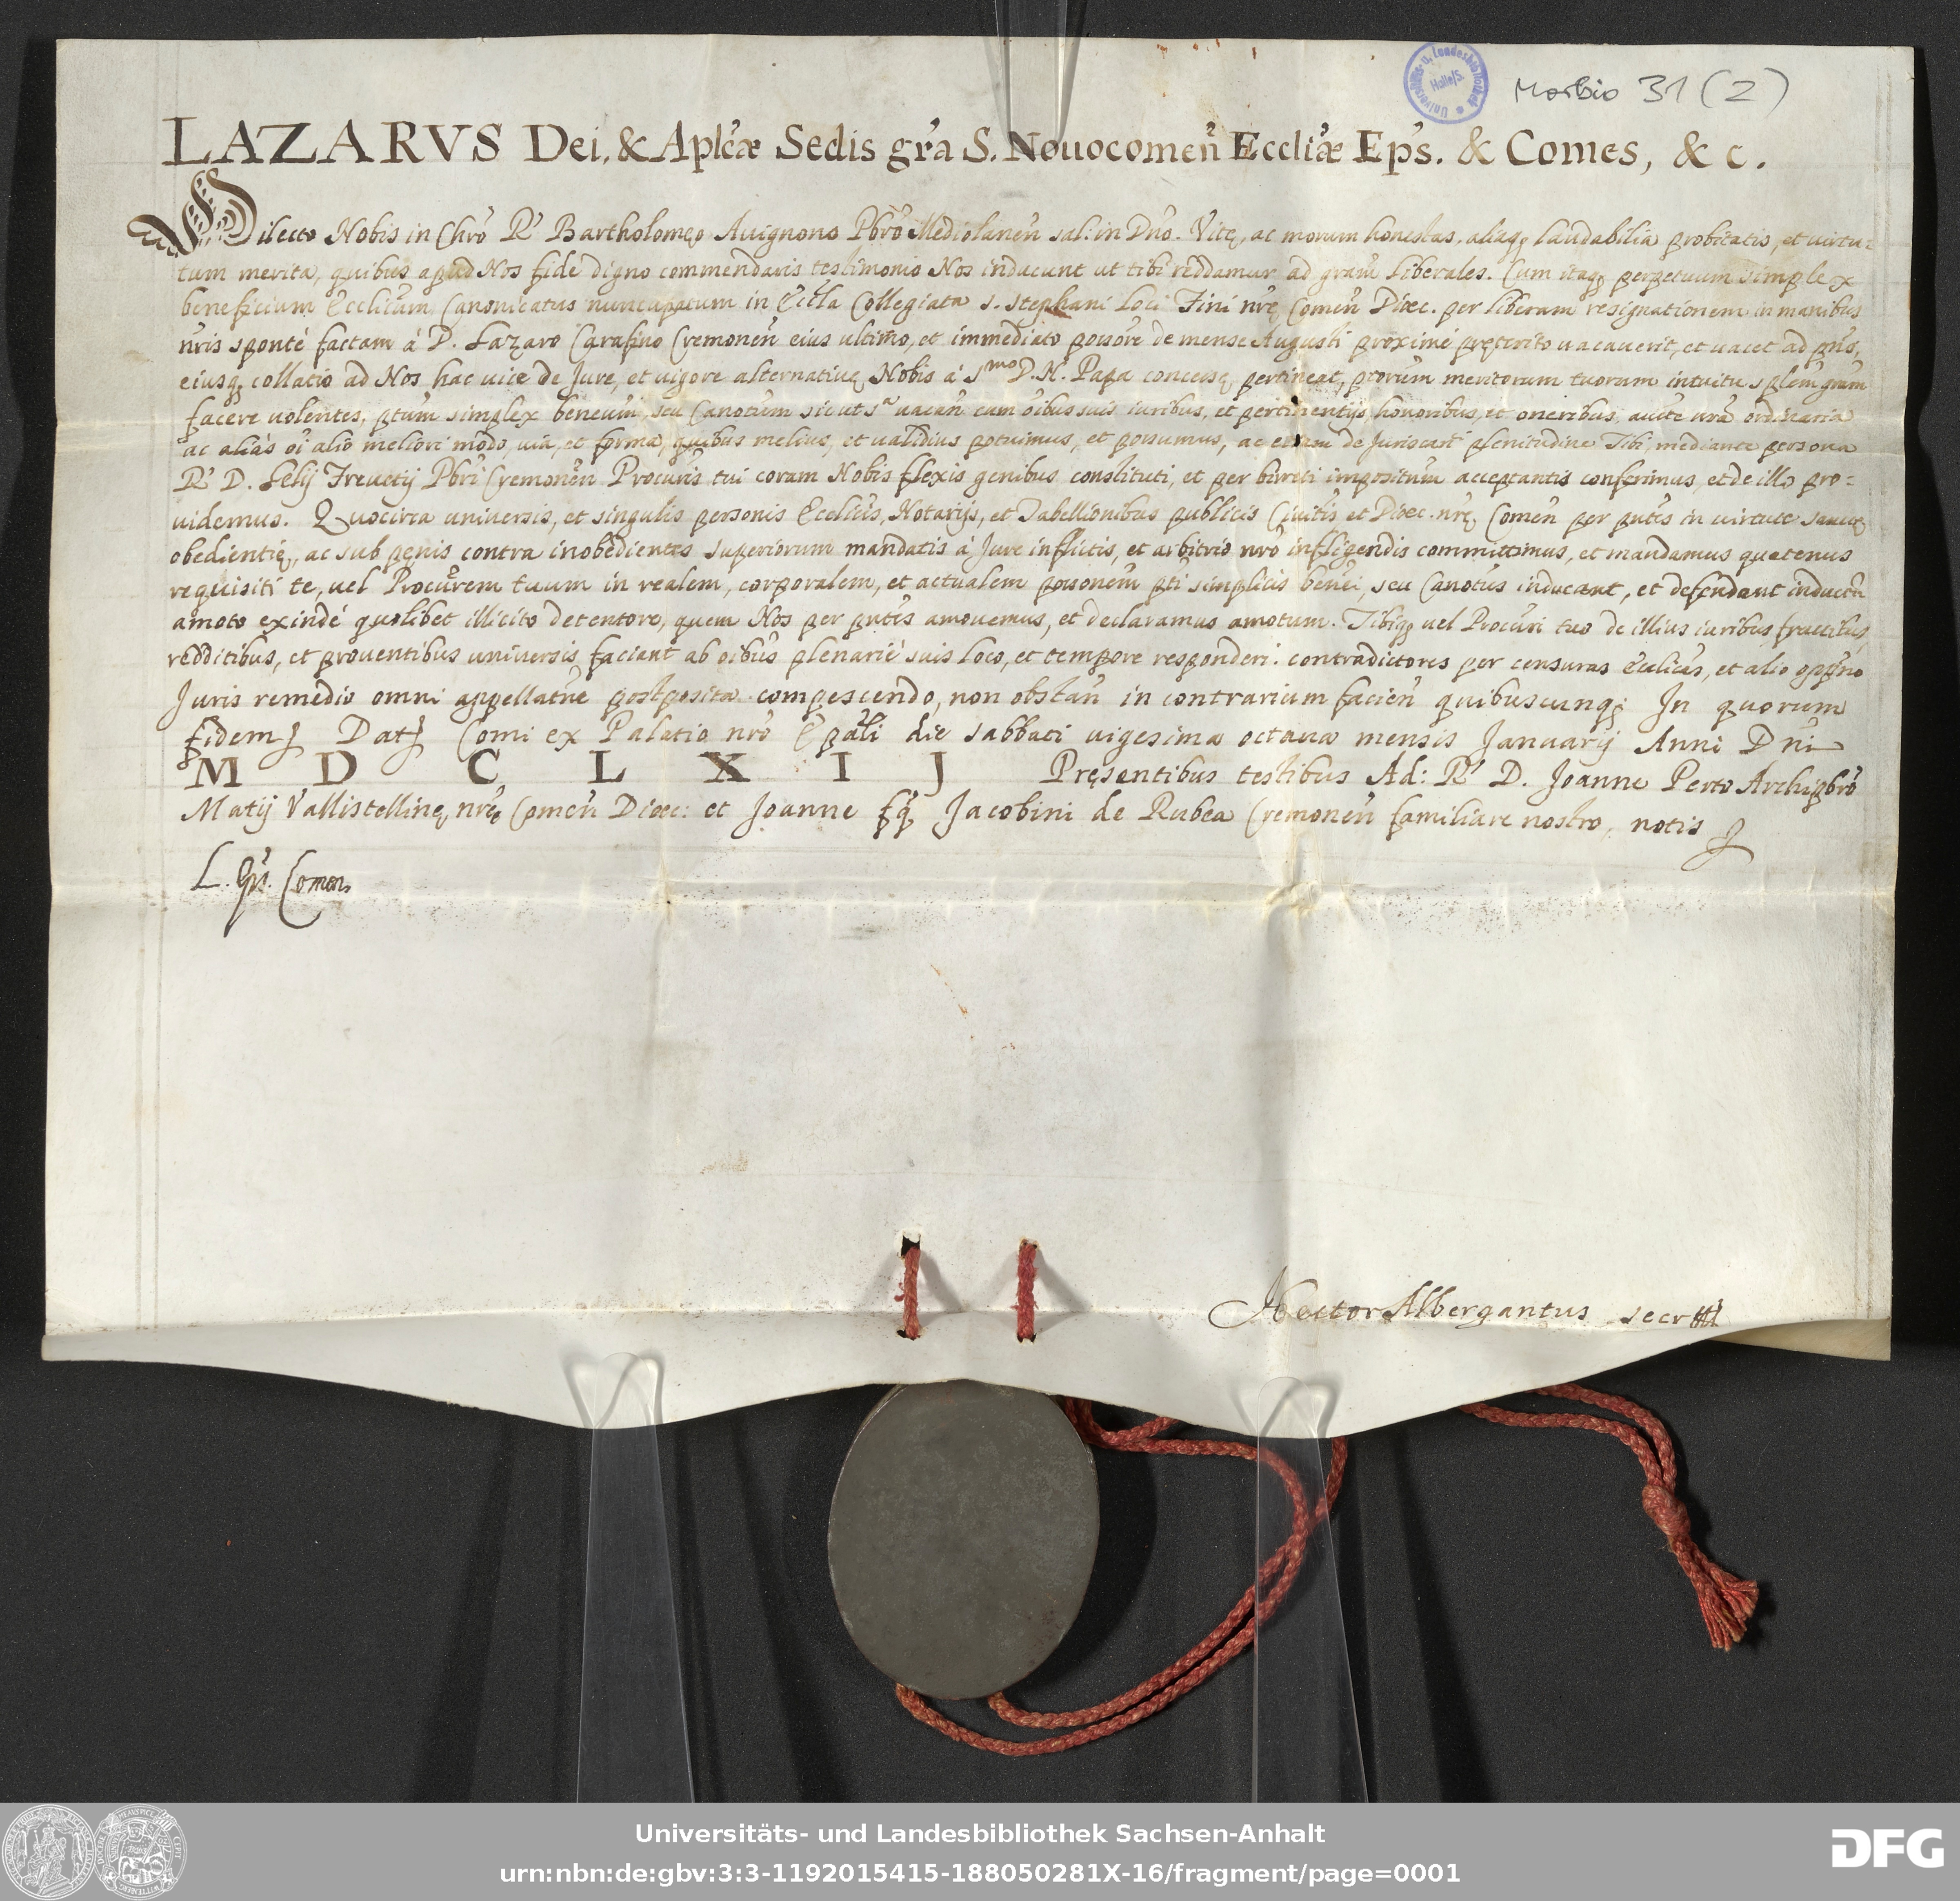 Universitäts- u. Landesbibliothek Halle/S.
Morbio 31 (2)
LAZARVS Dei, & Aplicæ Sedis gra S. Nouocomen Eccliæ Eps. & Comes, & c.
Dilecto Nobis in Chro R' Bartholomęo Auignono Pbro Mediolanen sal: in Dno. Vitę, ac morum honestas, aliaq; laudabilia probitatis, et virtu=
tum merita, quibus apud Nos fide digno commendaris testimonio Nos inducunt ut tibi reddamur ad gram liberales. Cum itaq; perpetuum simplex
beneficium Ecclicum Canonicatus nuncupatum in Eccla Collegiata S. Stephani loci Fini nrę Comen Dioec. per liberam resignationem in manibus
nris sponté factam à D. Lazaro Carafino Cremonen eius ultimo, et immediato possore de mense Augusti proximé pręterito uacauerit, et uacet ad pns,
eiusq; collatio ad Nos hac uice de Jure, et uigore alternatiuę Nobis à Smo D. N. Papa concessę pertineat, ptorum meritorum tuorum intuitu splem gram
facere uolentes, ptum simplex beneum, seu Canotum sicut sa uacan cum oibus suis iuribus, et pertinentijs, honoribus, et oneribus, aucte nra ordinaria
ac aliàs oi alio meliori modo, uia, et forma, quibus melius, et ualidius potuimus, et possumus, ac etiam de plenitudine Tibi, mediante persona
R' D. Lelij Freuetij Pbri Cremonen Procuris tui coram Nobis flexis genibus constituti, et per birreti impositum acceptantis conferimus, et de illo pro=
uidemus. Quocirca universis, et singulis personis Ecclicis, Notarijs, et Tabellionibus publicis Ciuitis et Dioec. nrę Comen per pntes in uirtute sanctę
obedientię, ac sub pęnis contra inobedientes superiorum mandatis à Jure inflictis, et arbitrio nro infligendis committimus, et mandamus quatenus
requisiti te, uel Procurem tuum in realem, corporalem, et actualem possonem pti simplicis benei, seu Canotus inducant, et defendant inductu
amoto exindé quolibet illicito detentore, quem Nos per pntes amouemus, et declaramus amotum. Tibiq; uel Procuri tuo de illius iuribus fructibus,
redditibus, et prouentibus universis faciant ab oibus plenarié suis loco, et tempore responderi. contradictores per censuras Ecclicas, et alio oppno
Juris remedio omni appellatne postposita compescendo, non obstan in contrarium facien quibuscunq; In quorum
fidem Dat Comi ex Palatio nro Epali die sabbati uigesima octaua mensis Januarij Anni Dni
M D C L X I J Pręsentibus testibus Ad: R' D. Joanne Perto Archipbro
Matij Vallistellinę, nrę Comen Dioec: et Joanne fq Jacobini de Rubea Cremonen familiare nostro, notis
L. Eps. Comen.
Hector Albergantus secr
Universitäts- und Landesbibliothek Sachsen-Anhalt
urn:nbn:de:gbv:3:3-1192015415-188050281X-16/fragment/page=0001
DFG